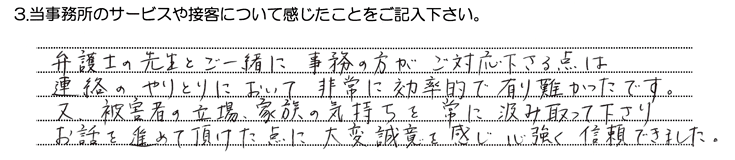 3.当事務所のサービスや接客について感じたことをご記入下さい。
弁護士の先生とご一緒に 事務の方が ご対応下さる点は
連絡の やりとりに おいて 非常に 効率的で 有り難かったです。
又、被害者の立場、家族の気持ちを 常に 汲み取って下さり
お話を 進めて 頂けた点に 大変誠意を 感じ 心強く 信頼できました。